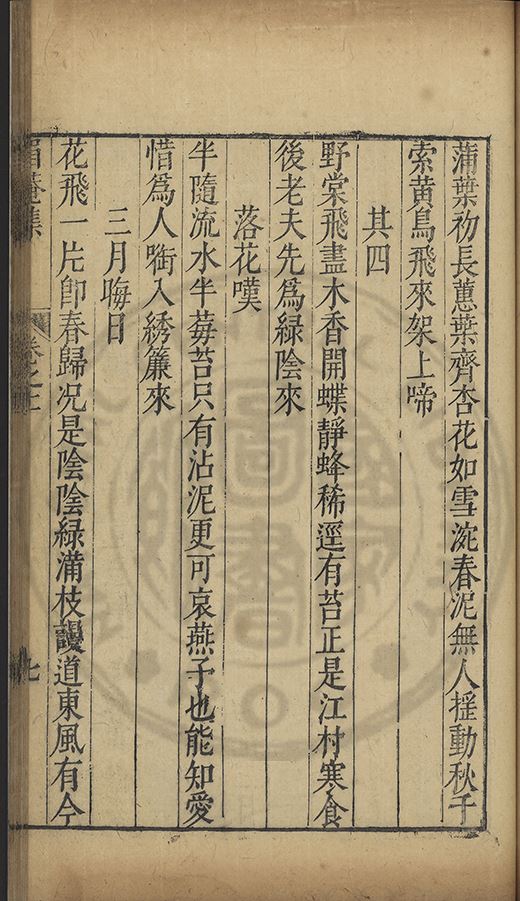 蒲葉初長蕙葉齊杏花如雪漉春泥無人揺動秋千
索黄鳥飛來架上啼
其四
野棠飛盡木香開蝶靜蜂稀逕有苔正是江村寒食
後老夫先爲綠陰來
落花嘆
半隨流水半莓苔只有沾泥更可哀燕子也能知愛
惜爲人啣入綉簾來
三月晦日
花飛一片卽春歸况是陰陰綠滿枝謾道東風有今
眉菴集
卷之
七